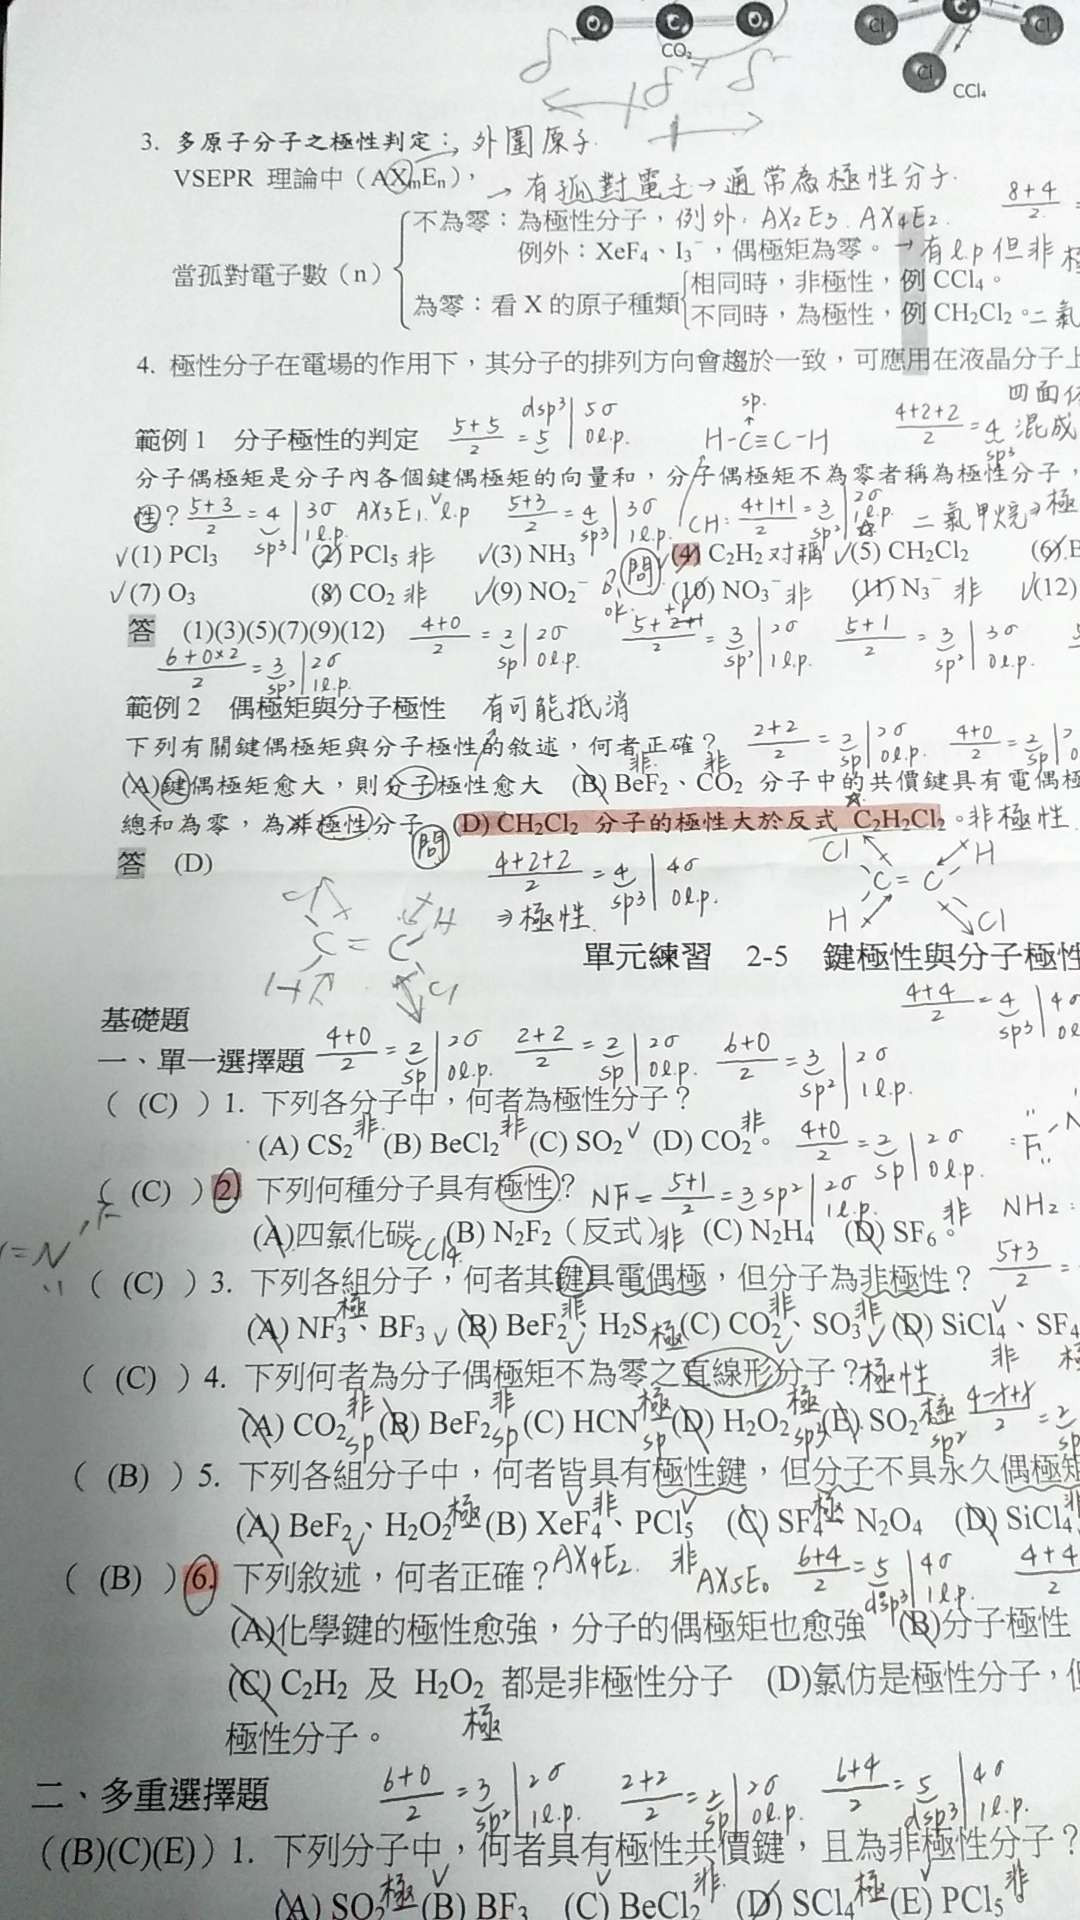 CO₂
Cl
C
Cl
Cl
CCl₄
δ⁻ δ⁺ δ⁻
3. 多原子分子之極性判定：外圍原子
VSEPR 理論中（AXmEn），→有孤對電子→通常為極性分子.
8+4
2
不為零：為極性分子，例外: AX2E3. AX4E2.
例外：XeF₄、I₃⁻，偶極矩為零。→有l.p但非極
當孤對電子數（n）
相同時，非極性，例 CCl₄。
為零：看 X 的原子種類
不同時，為極性，例 CH₂Cl₂。二氯
4. 極性分子在電場的作用下，其分子的排列方向會趨於一致，可應用在液晶分子上
範例 1 分子極性的判定 5+5/2 = 5 dsp³ | 5σ 0l.p. sp. H-C≡C-H 4+2+2/2 = 4 sp³ 四面体 混成
分子偶極矩是分子內各個鍵偶極矩的向量和，分子偶極矩不為零者稱為極性分子，
性？5+3/2 = 4 sp³ | 3σ 1l.p. AX3E1. l.p 5+3/2 = 4 sp³ | 3σ 1l.p. CH: 4+1+1/2 = 3 sp² | 2σ 1l.p. 二氯甲烷⇒極
✓(1) PCl₃ (2) PCl₅ 非 ✓(3) NH₃ 問 (4) C₂H₂ 对稱 ✓(5) CH₂Cl₂ (6)
✓(7) O₃ (8) CO₂ 非 ✓(9) NO₂⁻ ok. (10) NO₃⁻ 非 (11) N₃⁻ 非 ✓(12)
答 (1)(3)(5)(7)(9)(12) 4+0/2 = 2 sp | 2σ 0l.p. = 3 sp² | 2σ 1l.p. 5+1/2 = 3 sp² | 3σ 0l.p.
6+0×2/2 = 3 sp² | 2σ 1l.p.
範例 2 偶極矩與分子極性 有可能抵消
下列有關鍵偶極矩與分子極性的敘述，何者正確？ 2+2/2 = 2 sp | 2σ 0l.p. 4+0/2 = 2 sp
非 非
(A)鍵偶極矩愈大，則分子極性愈大 (B) BeF₂、CO₂ 分子中的共價鍵具有電偶極
總和為零，為非極性分子 問 (D) CH₂Cl₂ 分子的極性大於反式 C₂H₂Cl₂。非極性
答 (D) 4+2+2/2 = 4 sp³ | 4σ 0l.p. ⇒極性
Cl H
C=C
H Cl
Cl H
C=C
H Cl
單元練習 2-5 鍵極性與分子極性
4+4/2 = 4 sp³ | 4σ
基礎題
一、單一選擇題 4+0/2 = 2 sp | 2σ 0l.p. 2+2/2 = 2 sp | 2σ 0l.p. 6+0/2 = 3 sp² | 2σ 1l.p.
( (C) ) 1. 下列各分子中，何者為極性分子？
(A) CS₂ 非 (B) BeCl₂ 非 (C) SO₂ ✓ (D) CO₂ 非。 4+0/2 = 2 sp | 2σ 0l.p.
( (C) ) 2. 下列何種分子具有極性？ NF= 5+1/2 = 3 sp² | 2σ 1l.p. NH2:
(A)四氯化碳 CCl4 (B) N₂F₂（反式）非 (C) N₂H₄ (D) SF₆ 非。
5+3/2 =
( (C) ) 3. 下列各組分子，何者其鍵具電偶極，但分子為非極性？
(A) NF₃ 極、BF₃ (B) BeF₂ 非、H₂S 極 (C) CO₂ 非、SO₃ 非 (D) SiCl₄、SF₄
非 極
( (C) ) 4. 下列何者為分子偶極矩不為零之直線形分子？極性
(A) CO₂ 非 sp (B) BeF₂ 非 sp (C) HCN 極 sp (D) H₂O₂ 極 sp³ (E) SO₂ 極 sp²
( (B) ) 5. 下列各組分子中，何者皆具有極性鍵，但分子不具永久偶極矩
(A) BeF₂、H₂O₂ 極 (B) XeF₄ 非、PCl₅ (C) SF₄ 極、N₂O₄ (D) SiCl₄ 非
AX4E2. 非 AX5E0 6+4/2 = 5 dsp³ | 4σ 1l.p. 4+4/2
( (B) ) 6. 下列敘述，何者正確？
(A)化學鍵的極性愈強，分子的偶極矩也愈強 (B)分子極性
(C) C₂H₂ 及 H₂O₂ 都是非極性分子 (D)氯仿是極性分子，但
極性分子。 極
二、多重選擇題 6+0/2 = 3 sp² | 2σ 1l.p. 2+2/2 = 2 sp | 2σ 0l.p. 6+4/2 = 5 dsp³ | 4σ 1l.p.
((B)(C)(E)) 1. 下列分子中，何者具有極性共價鍵，且為非極性分子？
(A) SO₂ 極 (B) BF₃ (C) BeCl₂ 非 (D) SCl₄ 極 (E) PCl₅ 非